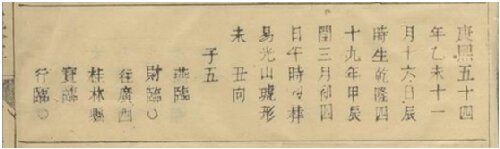 康熙五十四
年乙未十一
月十六日辰
時生乾隆四
十九年甲辰
閏三月初四
日午時葬
易光山虎形
未丑向
子五
燕臨
財臨○
往廣西
桂林縣
寶臨
行臨○